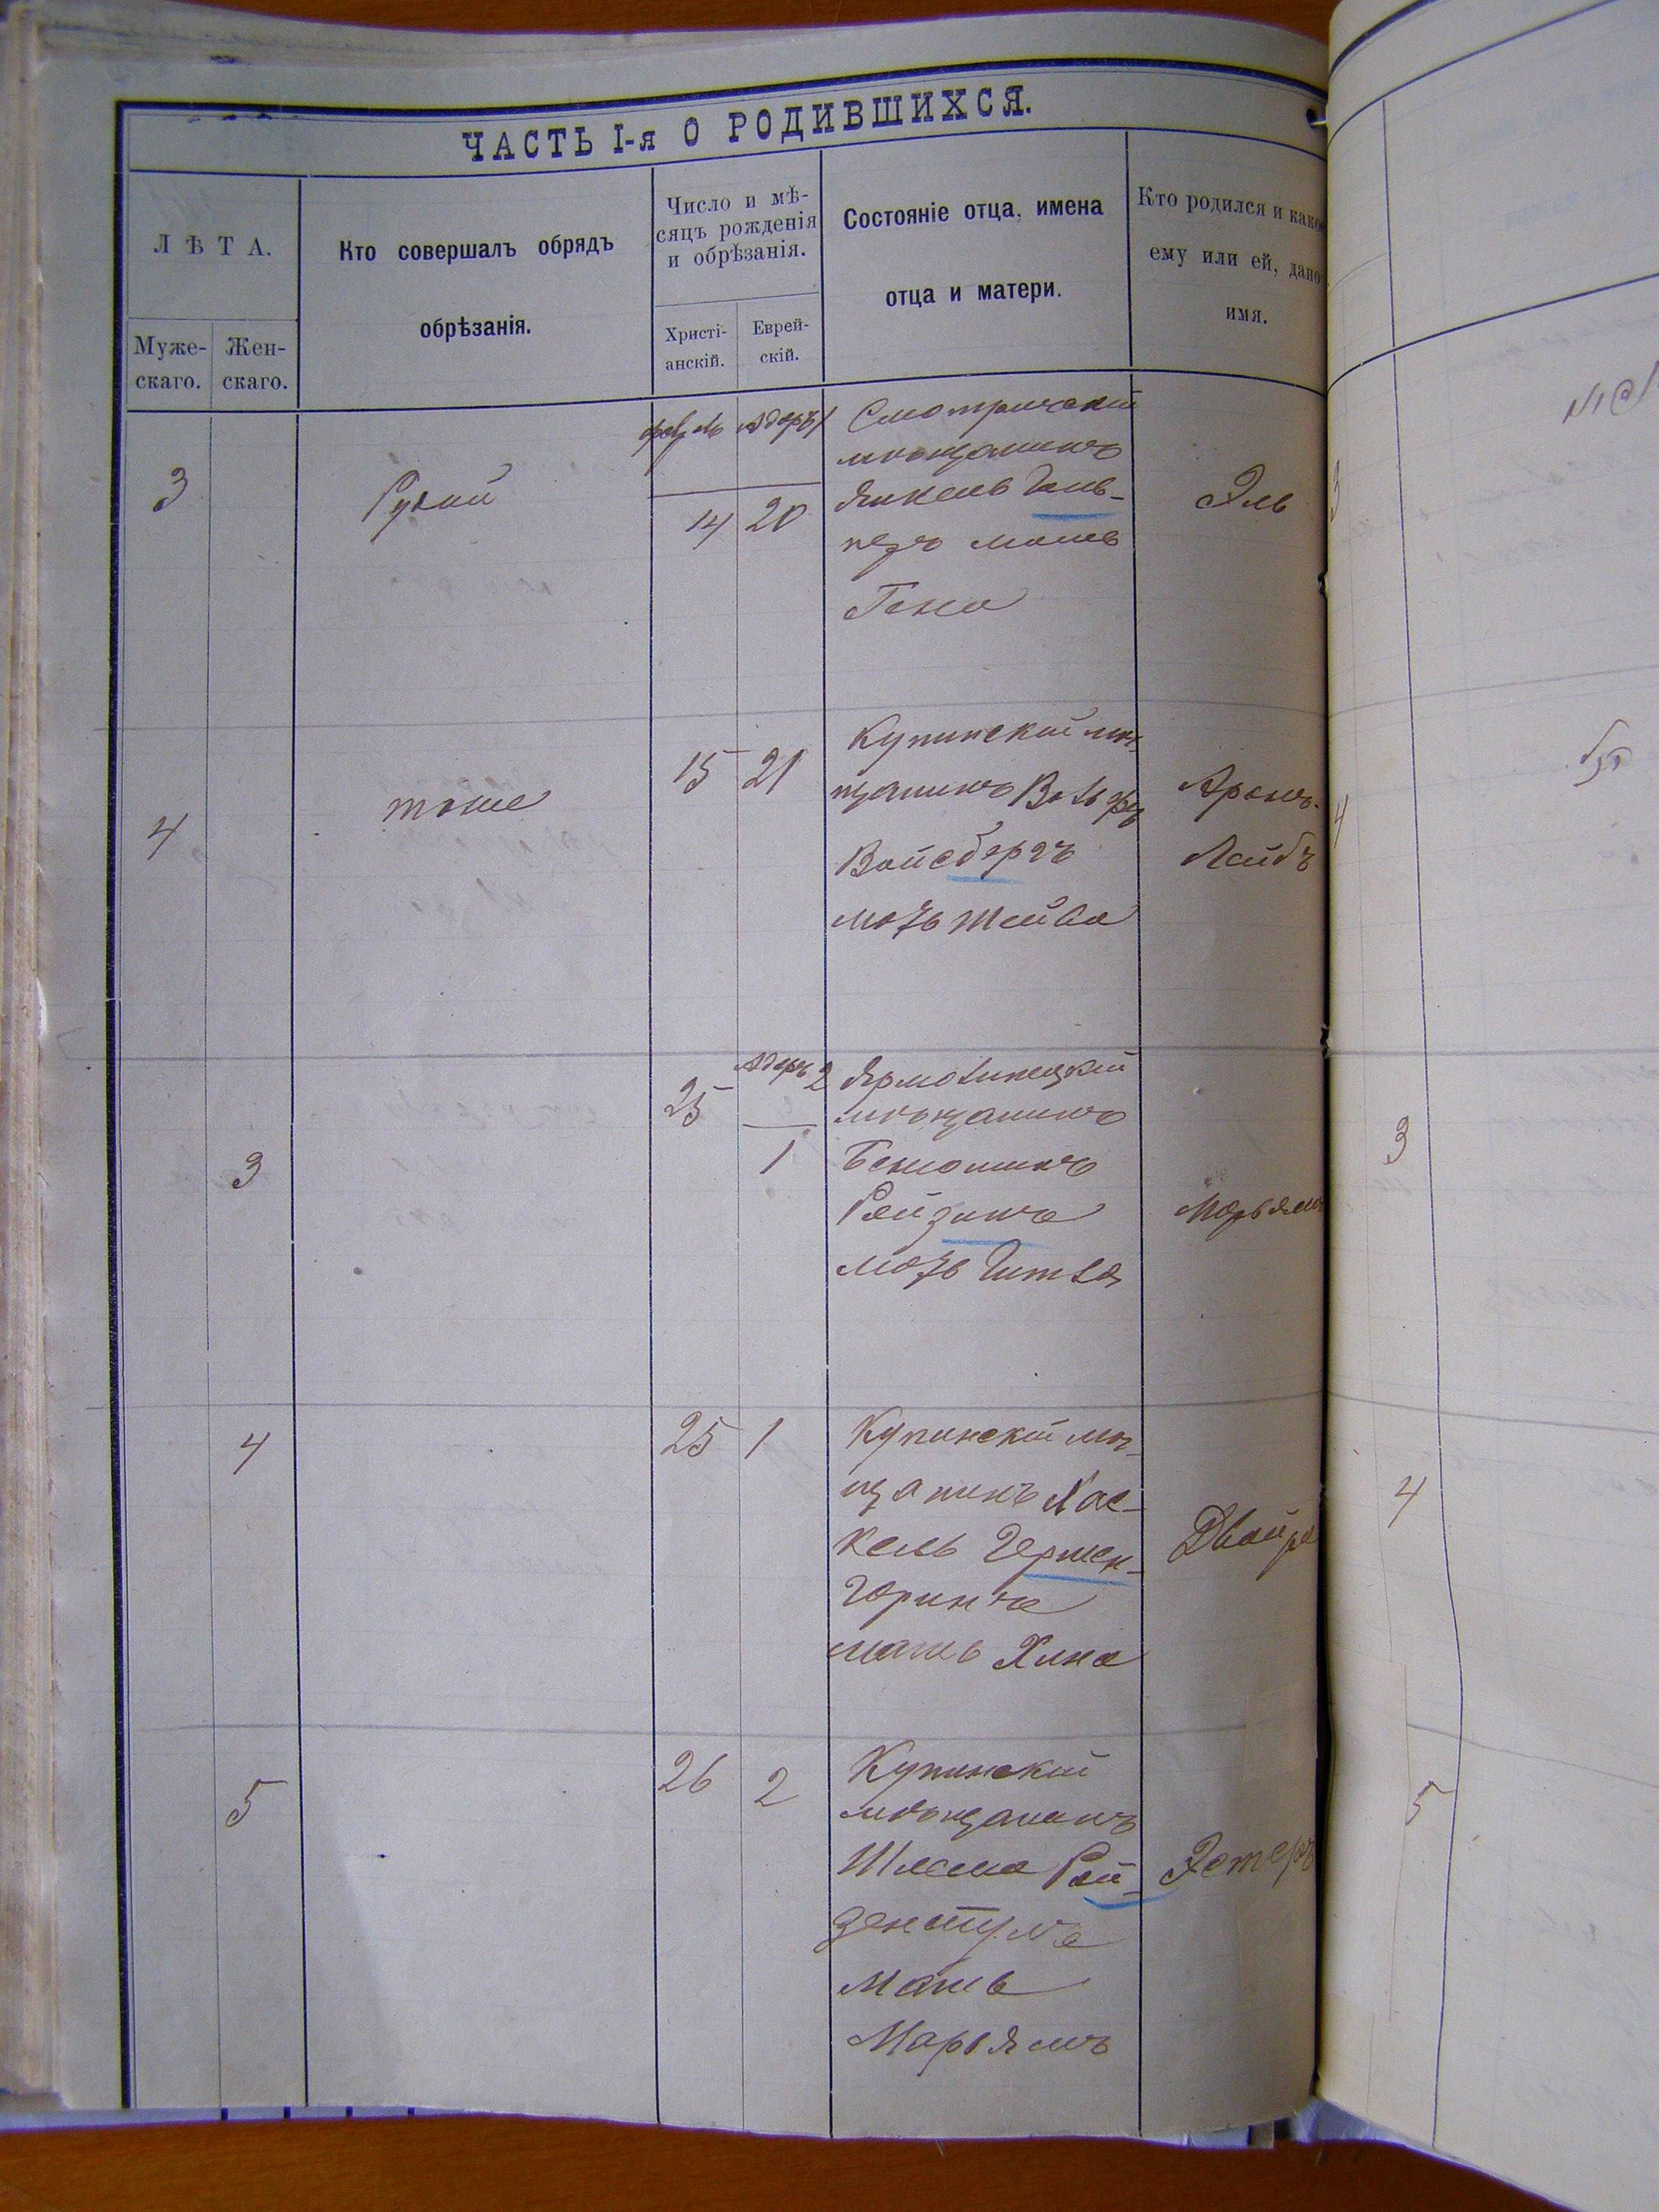 ЧАСТЬ I-я О РОДИВШИХСЯ.
ЛѢТА.
Муже-
скаго.
Жен-
скаго.
Кто совершалъ обрядъ
обрѣзанія.
Число и мѣ-
сяцъ рожденія
и обрѣзанія.
Христі-
анскій.
Еврей-
скій.
Состояніе отца, имена
отца и матери.
Кто родился и како
ему или ей, дано
имя.
3
14
20
Смотричскій
мѣщанинъ
мать
Эль
4
тоже
15
21
Купинскій мѣ-
щанинъ Вольфъ
Вайсбергъ
мать Шейва
Аронъ-
Лейбъ
3
25
Адеръ 2
1
Ярмолинецкій
мѣщанинъ
Бенюминъ
Ройзинъ
мать Гитля
Марьямъ
4
25
1
Купинскій мѣ-
щанинъ Хас-
кель Гершен-
горинъ
мать Хана
Двойра
5
26
2
Купинскій
мѣщанинъ
Шлема Рой-
зенштулъ
мать
Марьямъ
Эстеръ
3
4
3
4
5